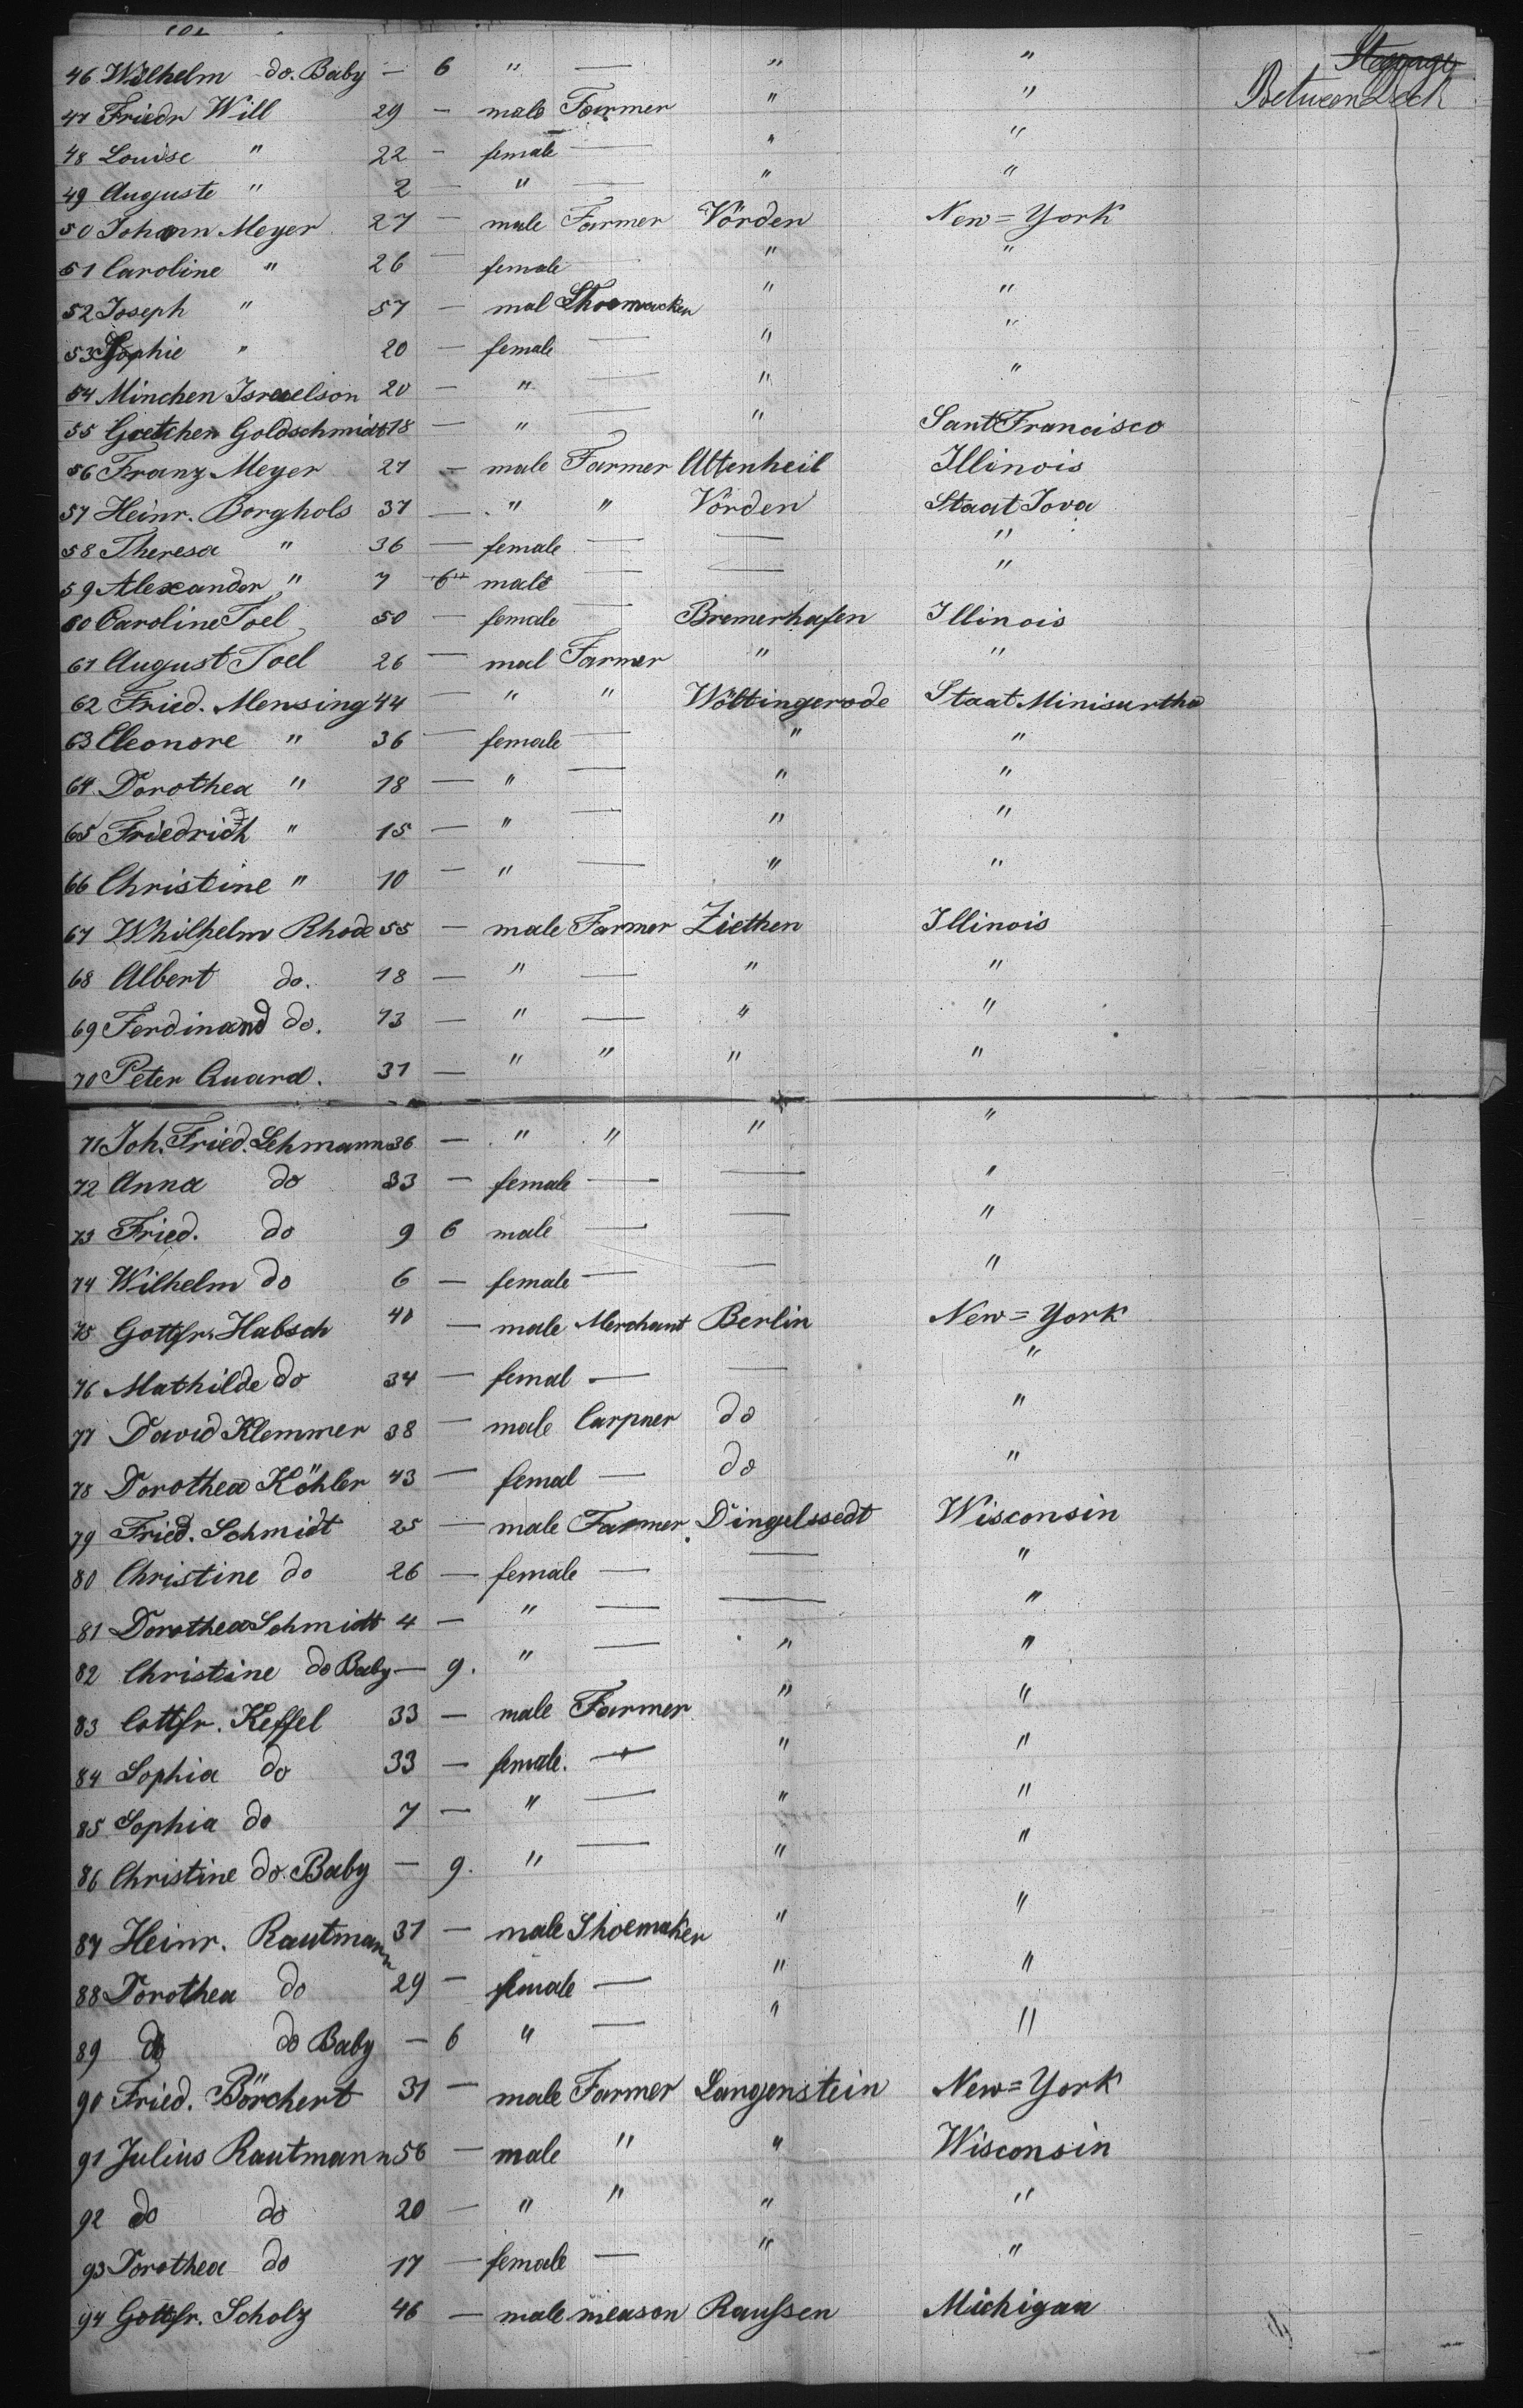 Steerage
46 Wilhelm do. Baby — 6 " — " " Between Deck
47 Friedr Will 29 — male Farmer " "
48 Louise " 22 — female — " "
49 Auguste " 2 — " — " "
50 Johann Meyer 27 — male Farmer Vörden New=York
51 Caroline " 26 — female — " "
52 Joseph " 57 — mal Shoemacker " "
53 Sophie " 20 — female — " "
54 Minchen Israelson 20 — " — " "
55 Gretchen Goldschmidt 18 — " — " Sant Francisco
56 Franz Meyer 27 — male Farmer Altenheil Illinois
57 Heinr. Borghols 37 — " " Vörden Staat Iova
58 Theresa " 36 — female — — "
59 Alexander " 7 6 male — — "
60 Caroline Toel 50 — female — Bremerhafen Illinois
61 August Toel 26 — mal Farmer " "
62 Fried. Mensing 44 — " " Wöltingerode Staat Minisurtha
63 Eleonore " 36 — female — " "
64 Dorothea " 18 — " — " "
65 Friedrich " 15 — " — " "
66 Christine " 10 — " — " "
67 Whilhelm Rhode 55 — male Farmer Ziethen Illinois
68 Albert do. 18 — " — " "
69 Ferdinand do. 13 — " — " "
70 Peter Quard. 31 — " " " "
71 Joh. Fried. Lehmann 36 — " " " "
72 Anna do 33 — female — — "
73 Fried. do 9 6 male — — "
74 Wilhelm do 6 — female — — "
75 Gottfr. Habsch 40 — male Merchant Berlin New=York
76 Mathilde do 34 — femal — — "
77 David Klemmer 38 — male Carpner do "
78 Dorothea Köhler 43 — femal — do "
79 Fried. Schmidt 25 — male Farmer Dingelssedt Wisconsin
80 Christine do 26 — female — — "
81 Dorothea Schmidt 4 — " — — "
82 Christine do Baby — 9. " — " "
83 Cottfr. Keffel 33 — male Farmer " "
84 Sophia do 33 — female. — " "
85 Sophia do 7 — " — " "
86 Christine do. Baby — 9. " — " "
87 Heinr. Rautmann 31 — male Shoemaker " "
88 Dorothea do 29 — female — " "
89 do do Baby — 6 " — " "
90 Fried. Börchert 31 — male Farmer Langenstein New=York
91 Julius Rautmann 56 — male " " Wisconsin
92 do do 20 — " " " "
93 Dorothea do 17 — female — " "
94 Gottfr. Scholz 46 — male meason Raußen Michigan